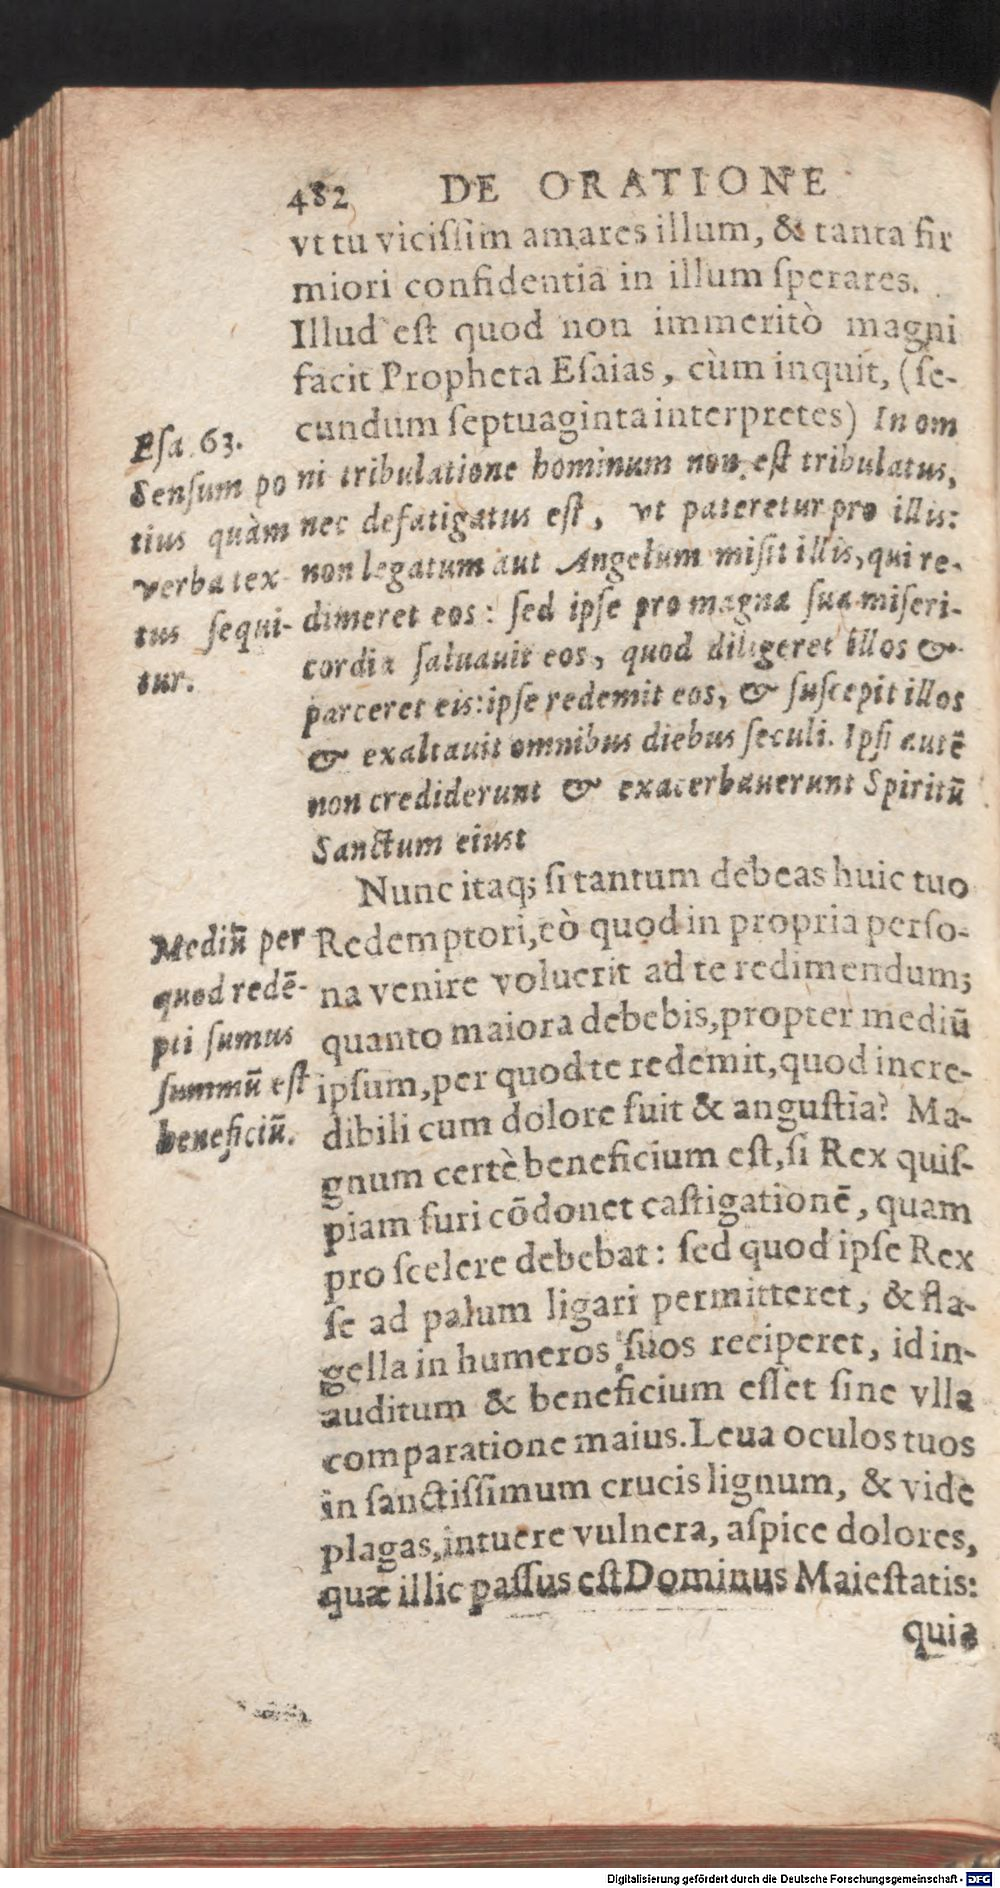 482 DE ORATIONE
vt tu viciſſim amares illum, & tanta fir
miori confidentia in illum ſperares.
Illud eſt quod non immeritò magni
facit Propheta Eſaias, cùm inquit, (ſe-
cundum ſeptuaginta interpretes) In om
ni tribulatione hominum non eſt tribulatus,
nec defatigatus eſt, vt pateretur pro illis:
non legatum aut Angelum miſit illis, qui re-
dimeret eos: ſed ipſe pro magna ſua miſeri-
cordia ſaluauit eos, quod diligeret illos &
parceret eis: ipſe redemit eos, & ſuſcepit illos
& exaltauit omnibus diebus ſeculi. Ipſi autē
non crediderunt & exacerbauerunt Spiritū
Sanctum eius
Eſa. 63.
Senſum po
tius quàm
verba tex-
tus ſequi-
tur.
Nunc itaq; ſi tantum debeas huic tuo
Redemptori, eò quod in propria perſo-
na venire voluerit ad te redimendum;
quanto maiora debebis, propter mediū
ipſum, per quod te redemit, quod incre-
dibili cum dolore fuit & anguſtia? Ma-
gnum certè beneficium eſt, ſi Rex quiſ-
piam furi cōdonet caſtigationē, quam
pro ſcelere debebat: ſed quod ipſe Rex
ſe ad palum ligari permitteret, & fla-
gella in humeros ſuos reciperet, id in-
auditum & beneficium eſſet ſine vlla
comparatione maius. Leua oculos tuos
in ſanctiſſimum crucis lignum, & vide
plagas, intuere vulnera, aſpice dolores,
quæ illic paſſus eſt Dominus Maieſtatis:
quia
Mediū per
quod redē-
pti ſumus
ſummū eſt
beneficiū.
Digitalisierung gefördert durch die Deutsche Forschungsgemeinschaft - DFG